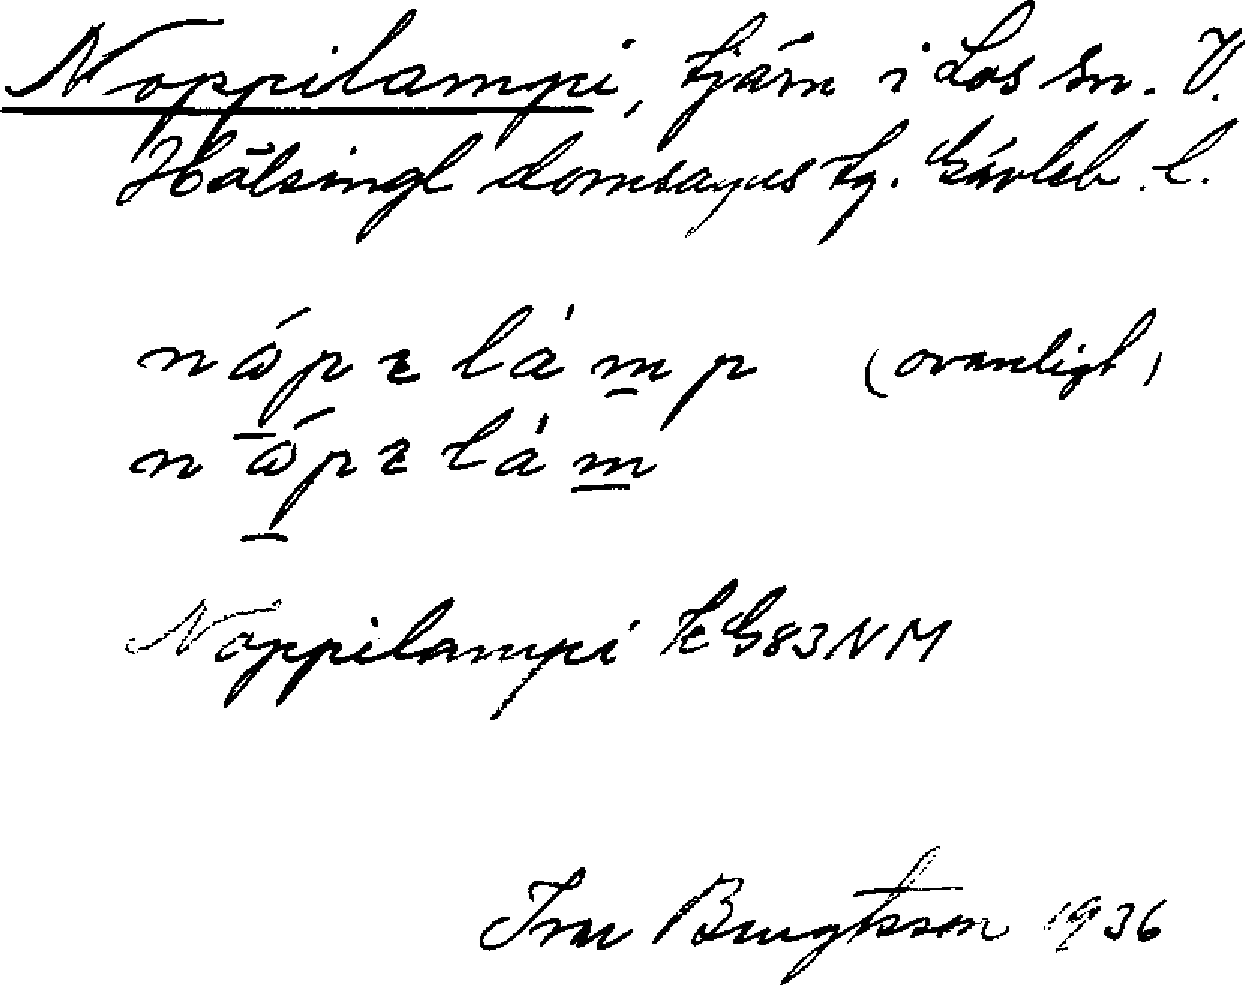 Noppilampi, tjärn i Los sn. V.
Hälsingl domsagas tg. Gävleb. l.
nåpɩlàmp (ovanligt)
nåpɩlàm
Noppilampi KG83NM
Ivar Bengtsson 1936